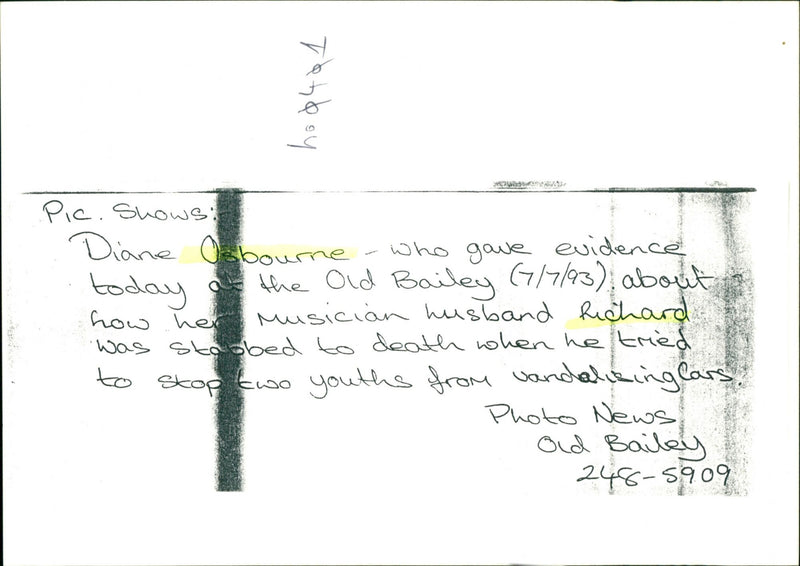 Pic. Shows:
Diane Osbourne - who gave evidence
today at the Old Bailey (7/7/93) about
how her musician husband Richard
was stabbed to death when he tried
to stop two youths from vandalising Cars.
Photo News
Old Bailey
248-5909